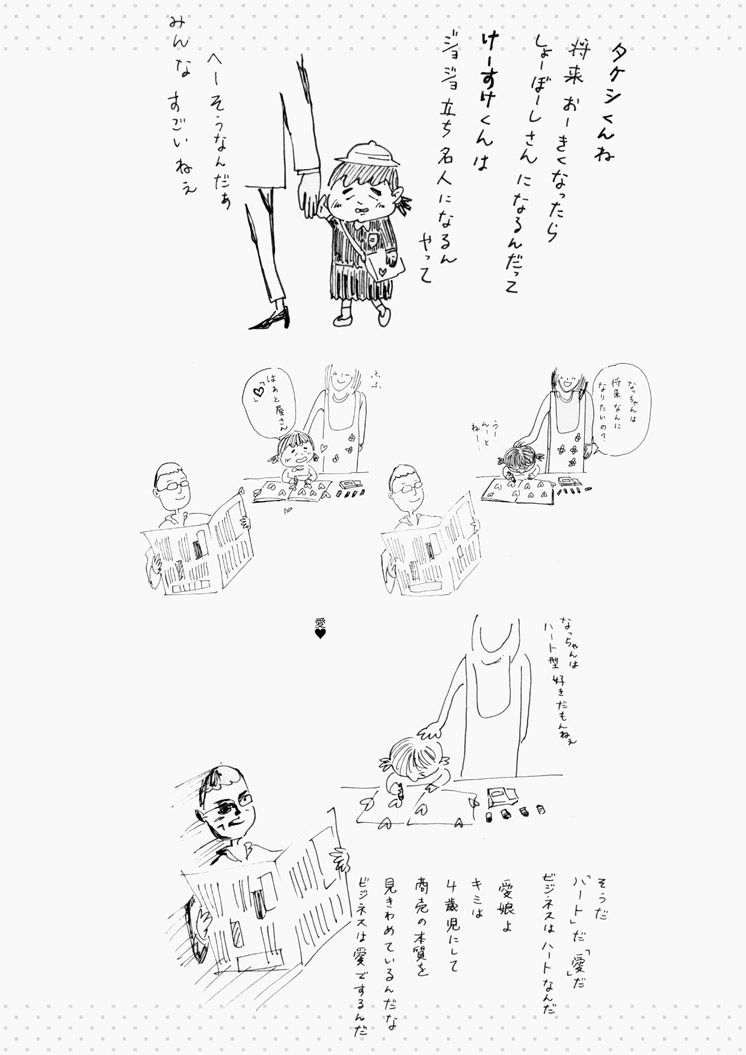 タケシくんね
将来おーきくなったら
しょーぼーしさんになるんだって
けーすけくんは
ジョジョ立ち名人になるん
やって
へーそうなんだぁ
みんなすごいねぇ
なっちゃんは
将来なんに
なりたいの?
うー
んーと
ねー…
はぁと屋さん
「♡」
ふふ
なっちゃんは
ハート型好きだもんねぇ
愛
♥
そうだ
「ハート」だ「愛」だ
ビジネスはハートなんだ
愛娘よ
キミは
4歳児にして
商売の本質を
見きわめているんだな
ビジネスは愛でするんだ